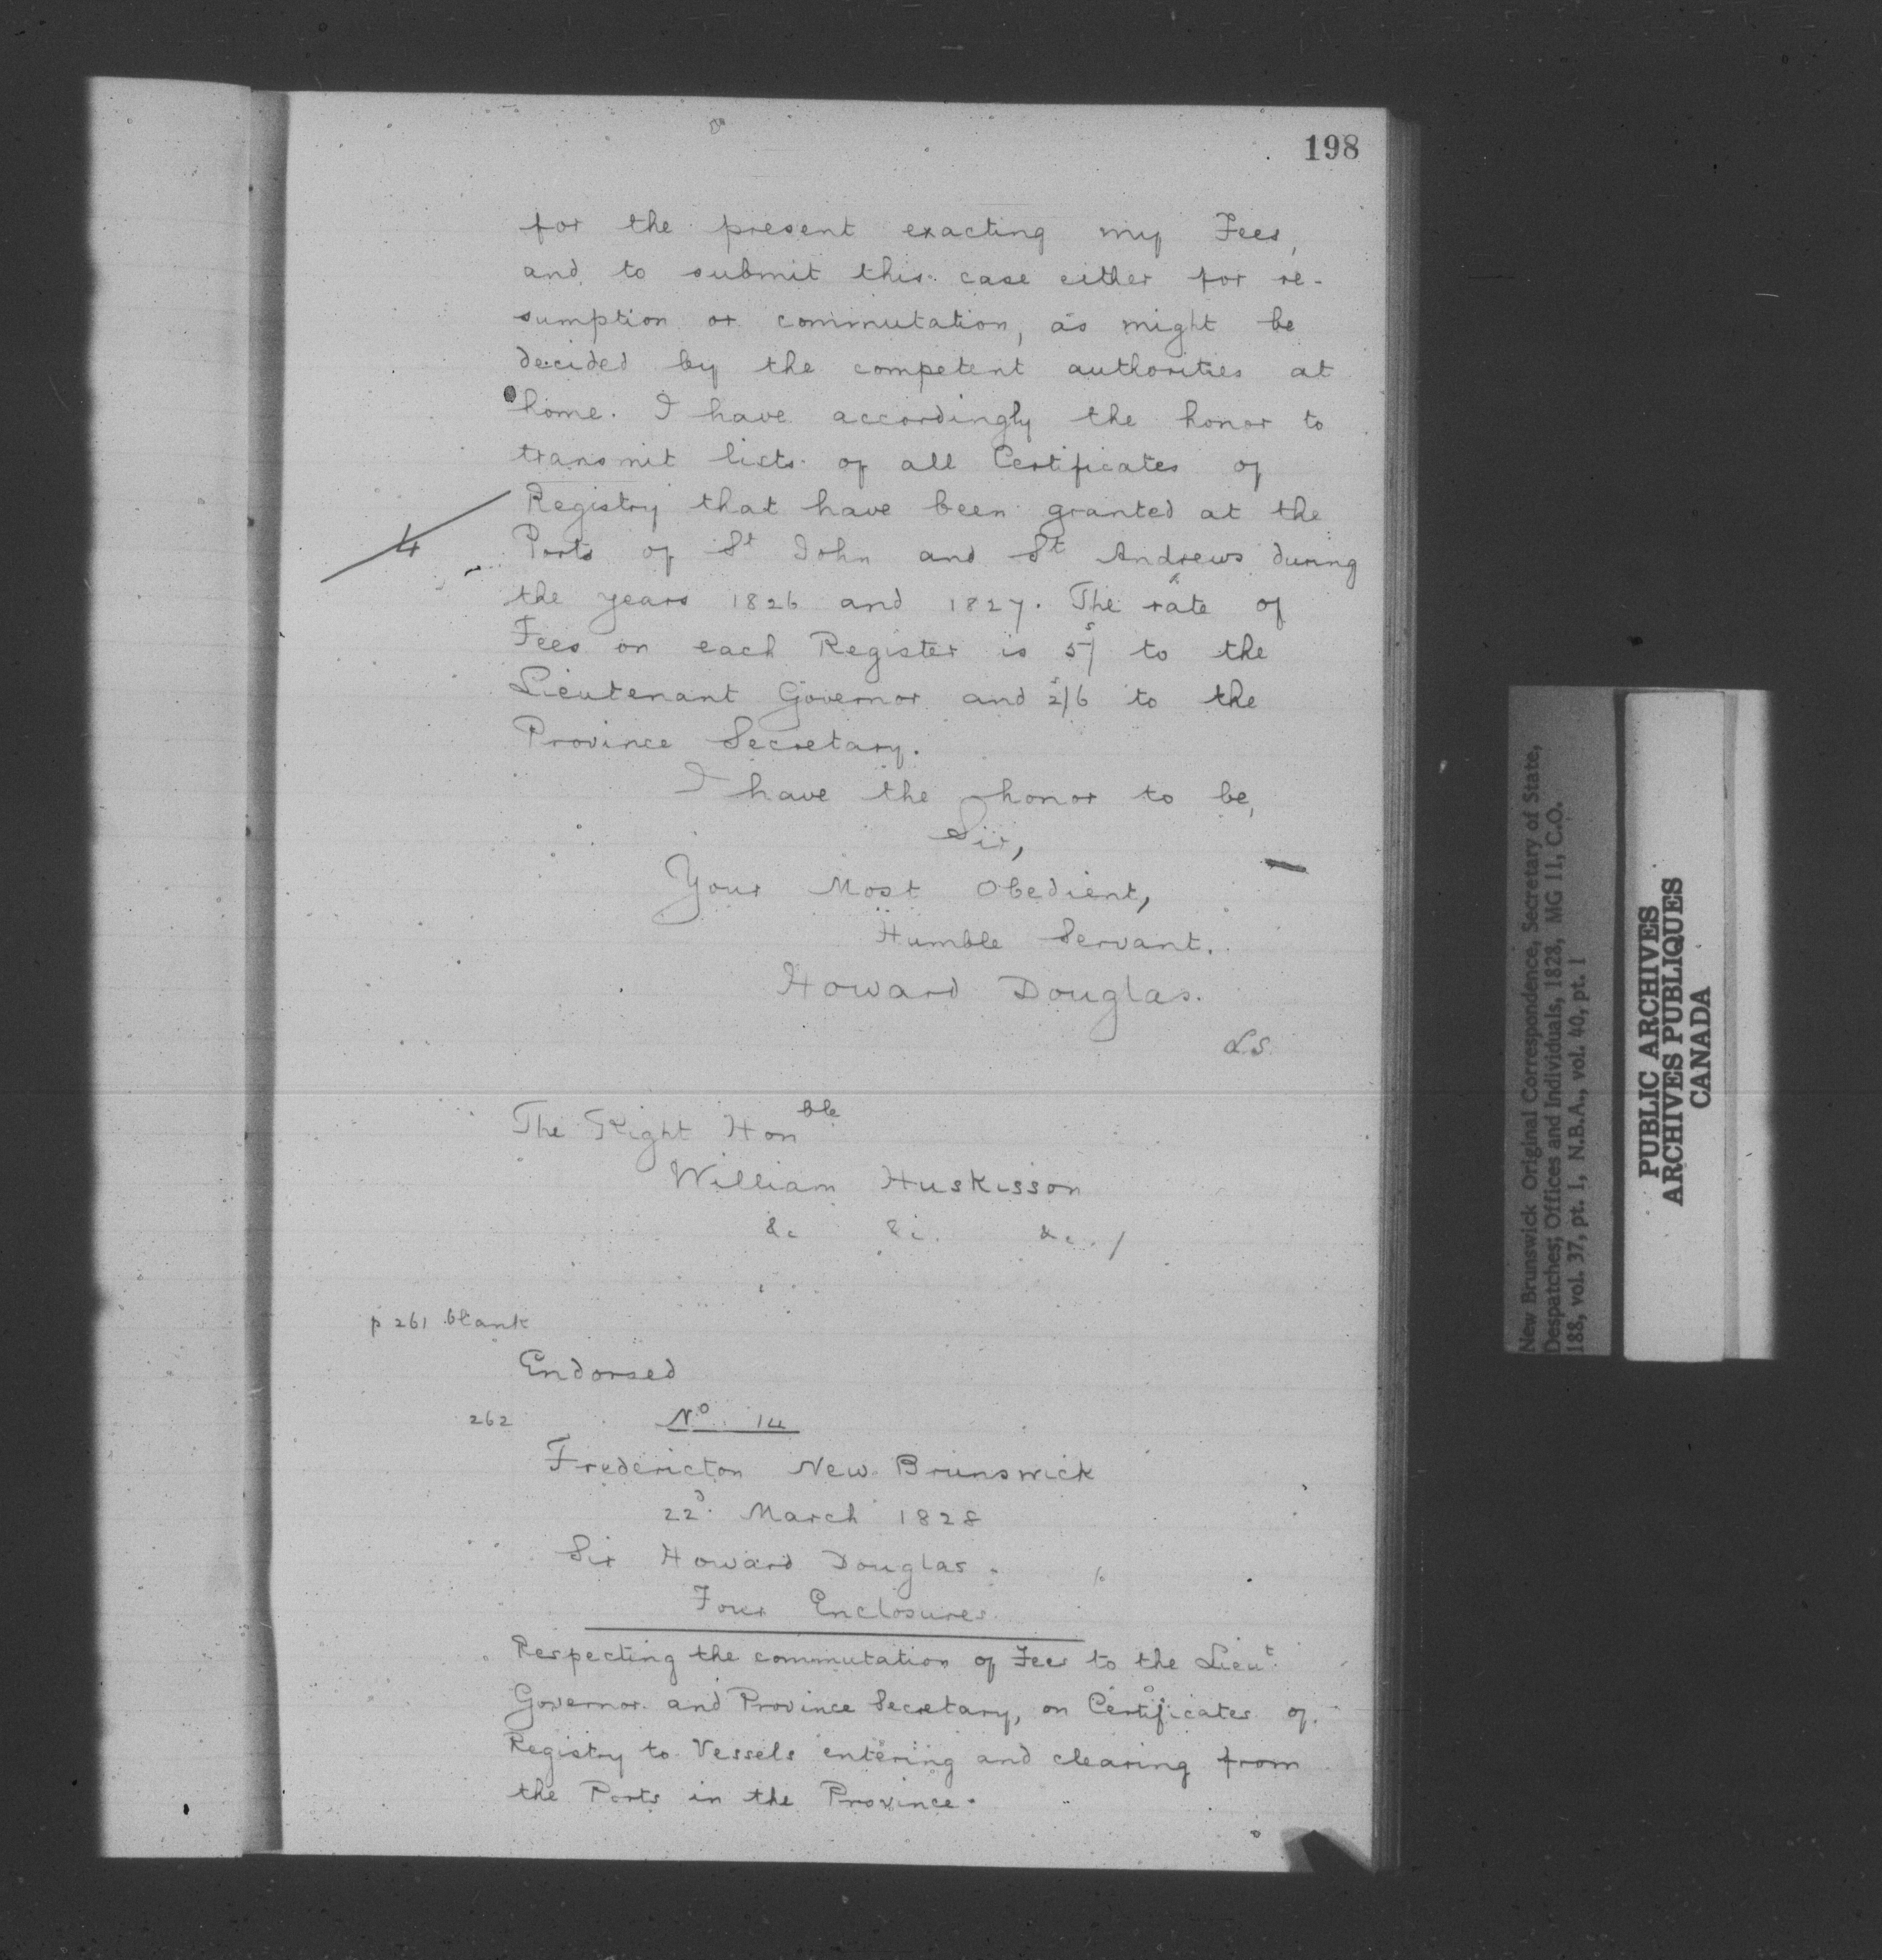 198
for the present exacting my Fees,
and to submit this case either for re-
sumption or commutation, as might be
decided by the competent authorities at
home. I have accordingly the honor to
transmit lists of all Certificates of
Registry that have been granted at the
4
Ports of St John and St Andrews during
the years 1826 and 1827. The rate of
Fees on each Register is 5s/ to the
Lieutenant Governor and 2s/6 to the
Province Secretary.
I have the honor to be,
Sir,
Your Most Obedient,
Humble Servant.
Howard Douglas.
L.S.
The Right Honble
William Huskisson
&c &c. &c. /
p 261 blank
Endorsed
262 No. 14
Fredericton New Brunswick
22d. March 1828
Sir Howard Douglas.
Four Enclosures.
Respecting the commutation of Fees to the Lieut.
Governor and Province Secretary, on Certificates of
Registry to Vessels entering and clearing from
the Ports in the Province.
New Brunswick Original Correspondence, Secretary of State,
Despatches; Offices and Individuals, 1828, MG 11, C.O.
188, vol. 37, pt. 1, N.B.A., vol. 40, pt. 1
PUBLIC ARCHIVES
ARCHIVES PUBLIQUES
CANADA